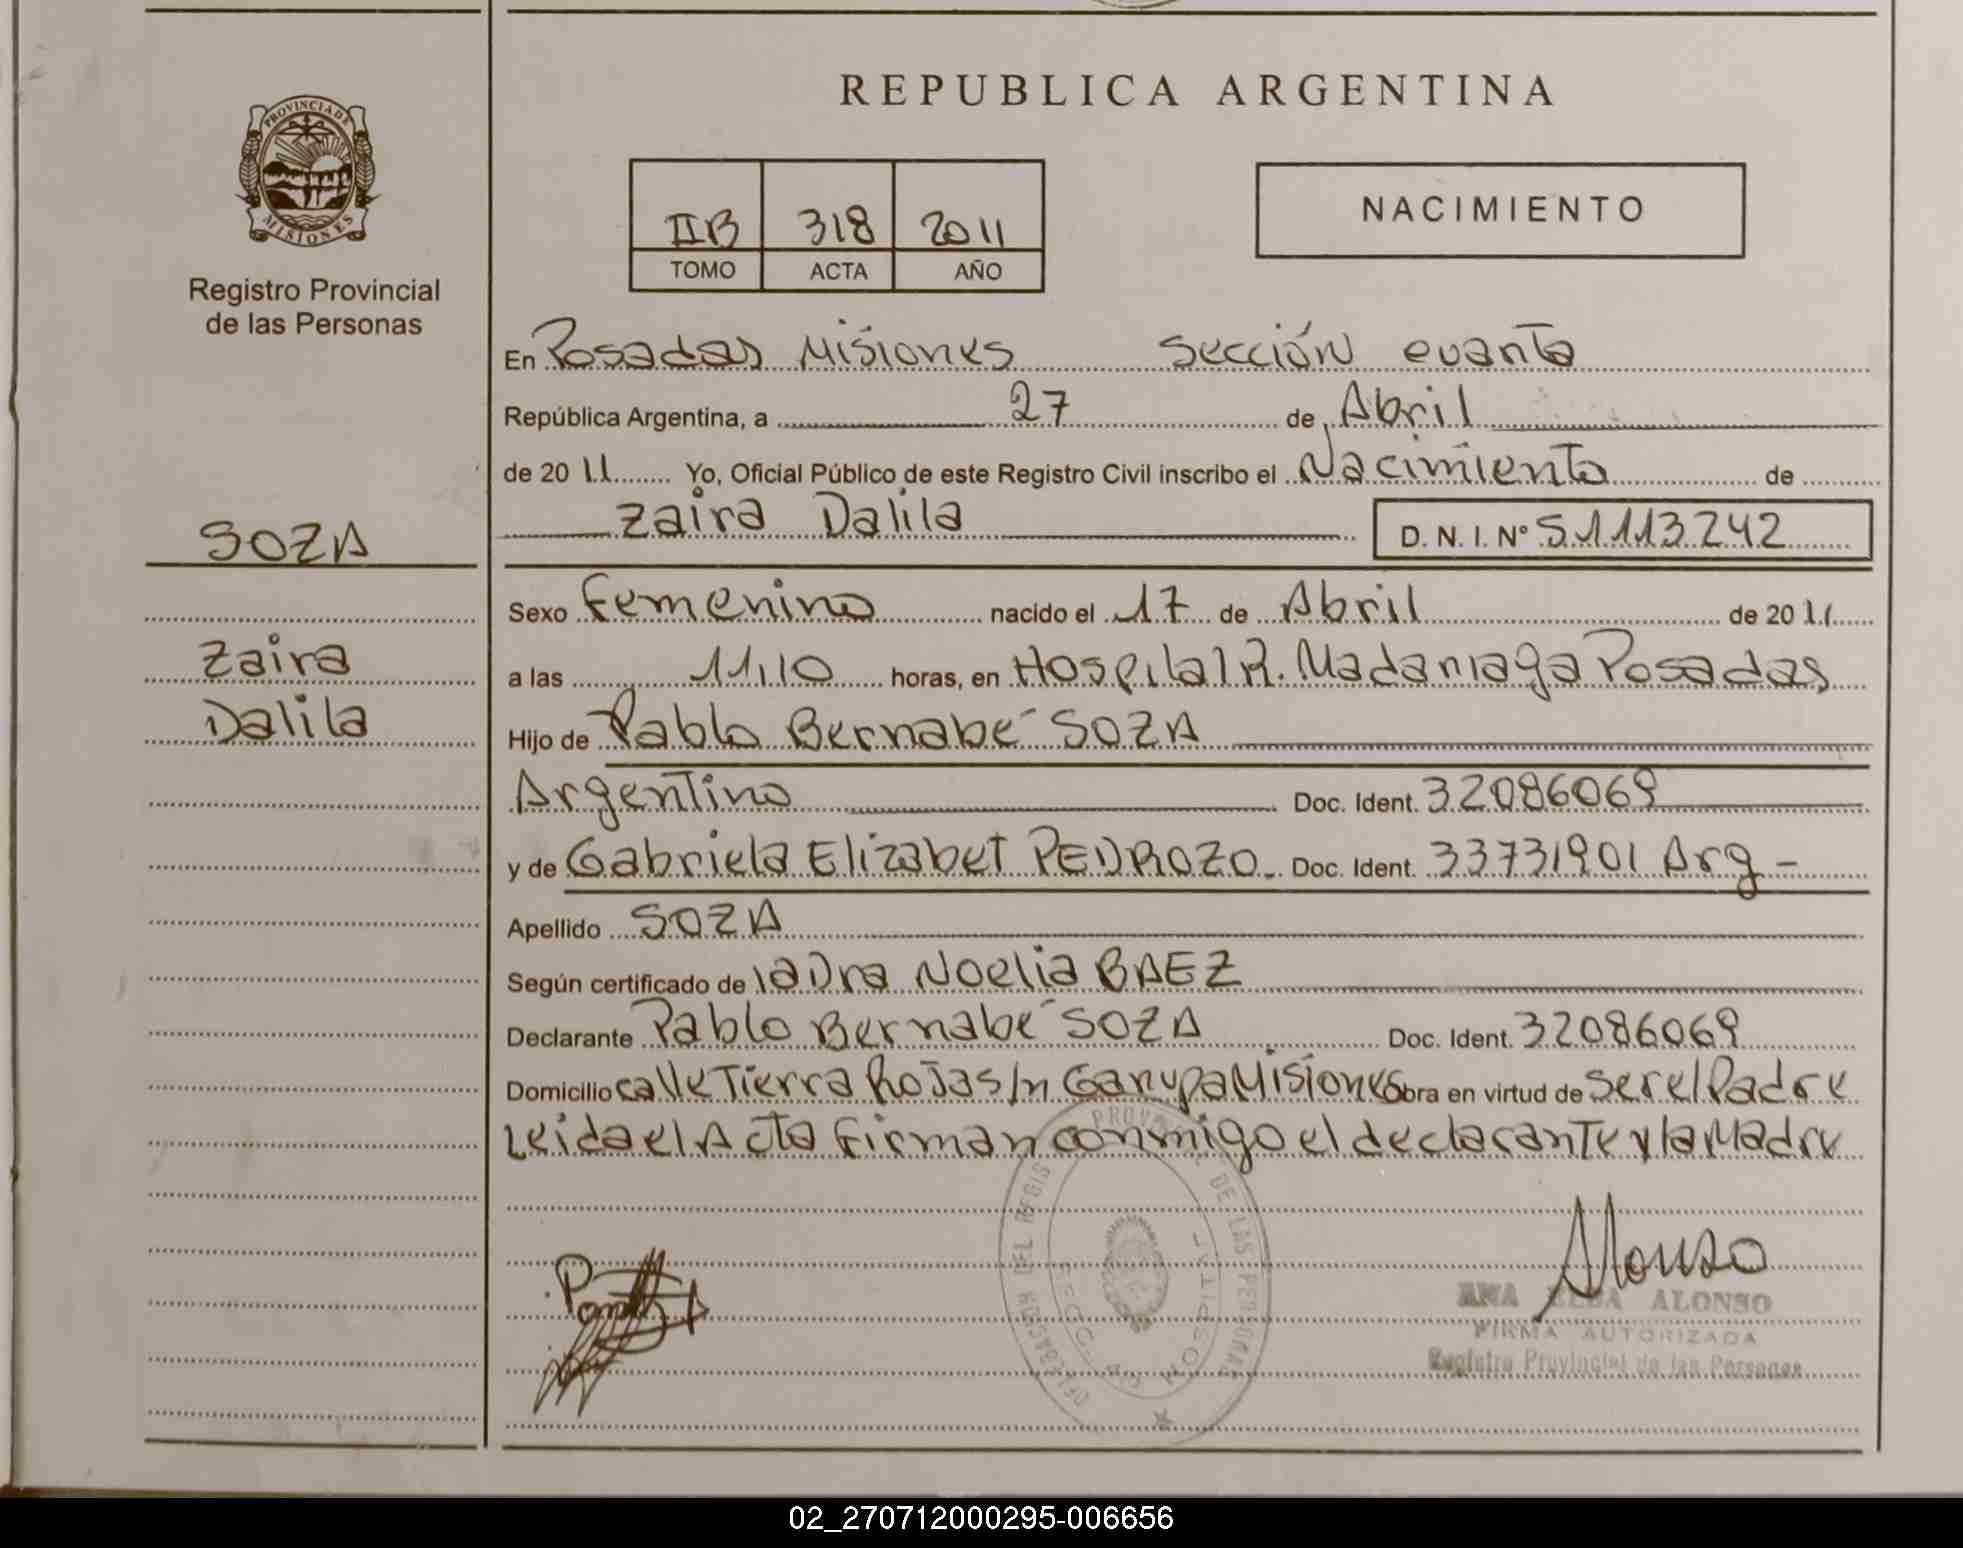 REPUBLICA ARGENTINA
PROVINCIA DE
MISIONES
Registro Provincial
de las Personas
IIB 318 2011
TOMO ACTA AÑO
NACIMIENTO
En Posadas Misiones sección cuarta
República Argentina, a 27 de Abril
de 2011 Yo, Oficial Público de este Registro Civil inscribo el Nacimiento de
Zaira Dalila D. N. I. Nº 51113242
SOZA
Zaira
Dalila
Sexo Femenino nacido el 17 de Abril de 2011
a las 11,10 horas, en Hospital R. Madariaga Posadas
Hijo de Pablo Bernabé SOZA
Argentino Doc. Ident. 32086069
y de Gabriela Elizabet PEDROZO Doc. Ident. 33731901 Arg -
Apellido SOZA
Según certificado de la Dra Noelia BAEZ
Declarante Pablo Bernabé SOZA Doc. Ident. 32086069
Domicilio calle Tierra Roja s/n Garupa Misiones Obra en virtud de ser el Padre
Leida el Acta firman conmigo el declarante y la Madre
PROVINCIAL DE LAS PERSONAS
HOSPITAL
Alonso
ANA ELBA ALONSO
FIRMA AUTORIZADA
Registro Provincial de las Personas
02_270712000295-006656